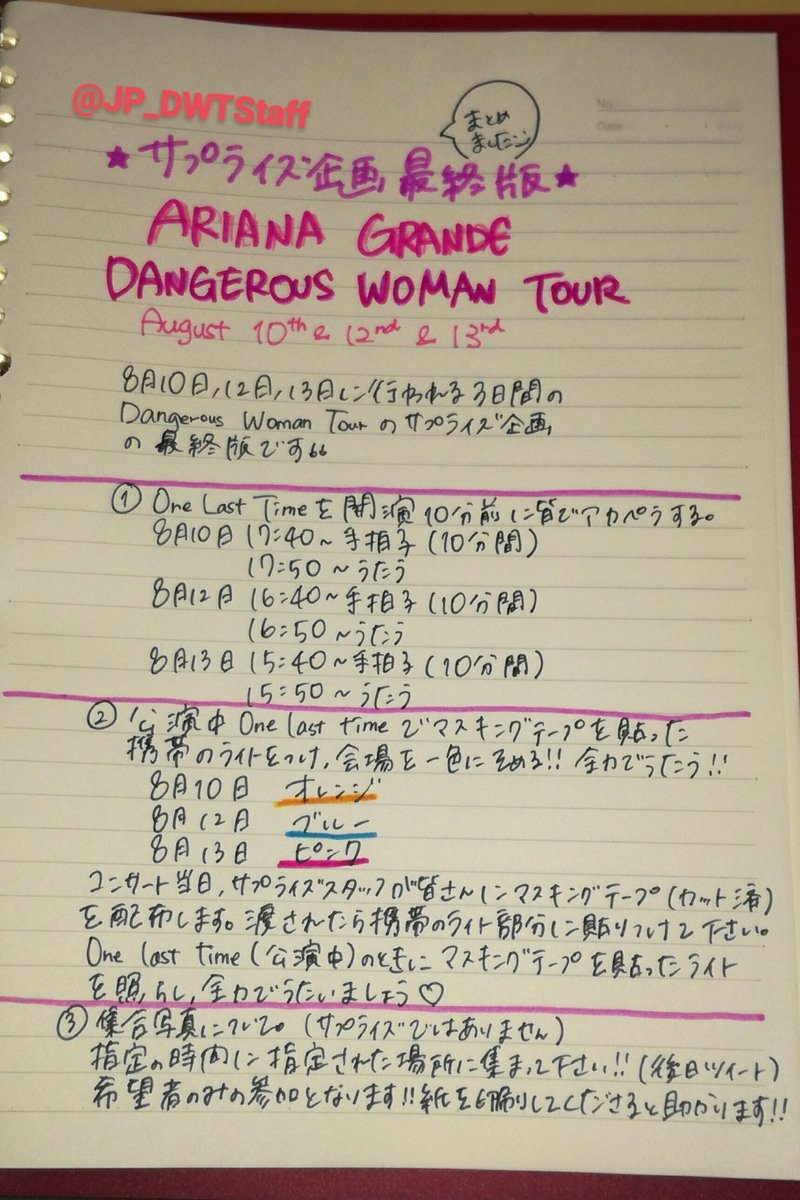 @JP_DWTStaff
No.
Date
まとめ
ました
★サプライズ企画 最終版★
ARIANA GRANDE
DANGEROUS WOMAN TOUR
August 10th & 12nd & 13rd
8月10日,12日,13日に行われる3日間の
Dangerous Woman Tour のサプライズ企画
の最終版です
① One Last Timeを開演10分前に皆でアカペラする。
8月10日 17:40~手拍子(10分間)
17:50~うたう
8月12日 16:40~手拍子(10分間)
16:50~うたう
8月13日 15:40~手拍子(10分間)
15:50~うたう
② 公演中 One last timeでマスキングテープを貼った
携帯のライトをつけ,会場を一色にそめる!! 全力でうたう!!
8月10日 オレンジ
8月12日 ブルー
8月13日 ピンク
コンサート当日,サプライズスタッフが皆さんにマスキングテープ(カット済)
を配布します。渡されたら携帯のライト部分に貼りつけて下さい。
One last time(公演中)のときにマスキングテープを貼ったライト
を照らし,全力でうたいましょう♡
③ 集合写真について。(サプライズではありません)
指定の時間に指定された場所に集まって下さい!!(後日ツイート)
希望者のみの参加となります!!紙を印刷してくださると助かります!!